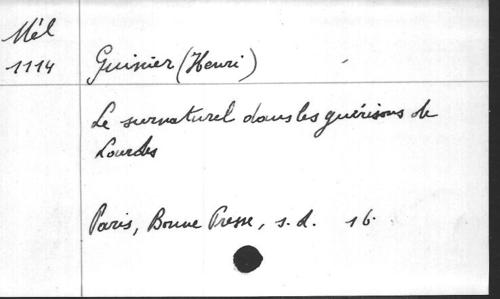 Mél
1114
Guinier (Henri)
Le surnaturel dans les guérisons de
Lourdes
Paris, Bonne Presse, s.d. 16.